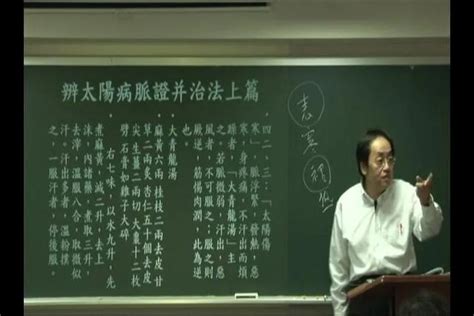 辨太陽病脈證并治法上篇
四二、三:「太陽傷
寒」,脈浮緊,發熱,惡
寒,身疼痛,不汗出而煩
躁者,「大青龍湯」主
之。若脈微弱,汗出,惡
風者,不可服之;服之則
厥,筋惕肉潤,此為逆
大青龍湯
麻黃六兩 桂枝二兩去皮 甘
草二兩炙 杏仁五十個去皮
尖 生薑二兩切 大棗十二枚
劈 石膏如雞子大碎
右七味,以水九升,先
煮麻黃,減二升,去上
沫,內諸藥,煮取三升,
去滓,溫服八合,取微似
汗。汗出多者,溫粉撲
之。一服汗者,停後服。
表寒 裡熱